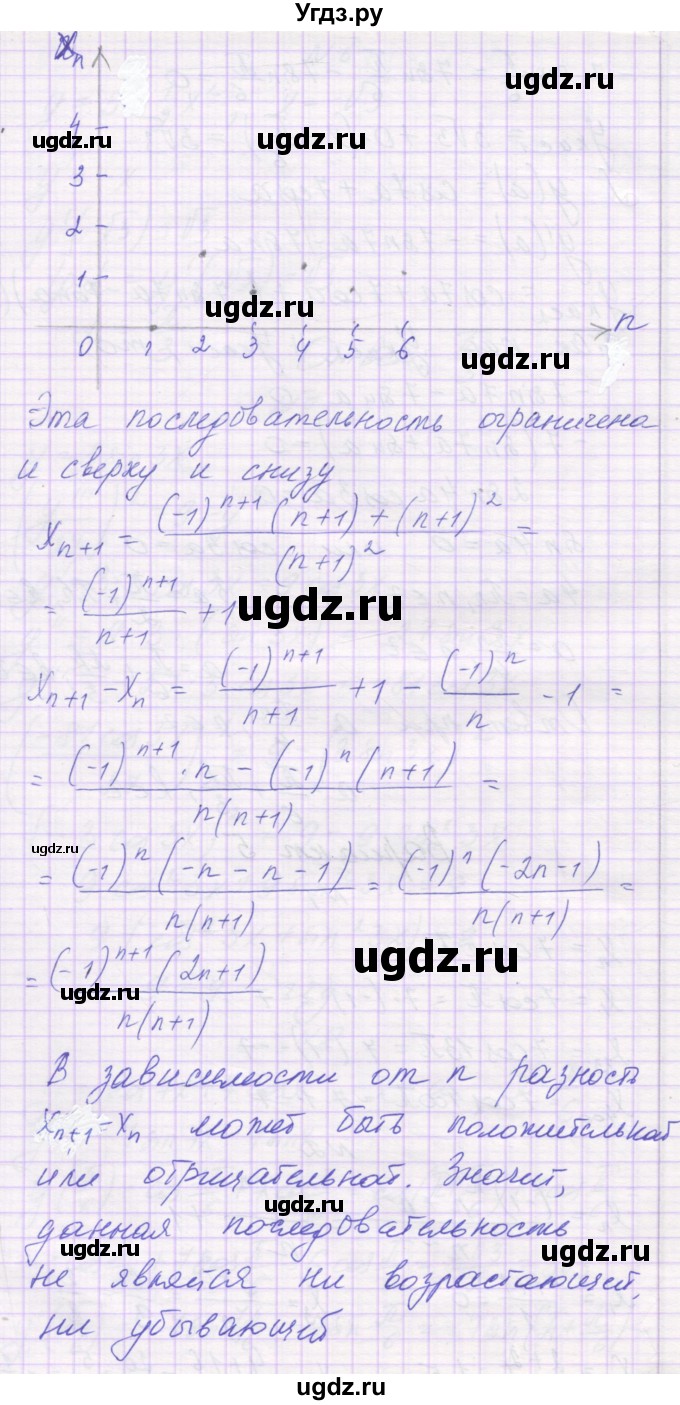 Угдз.ру
xₙ
4
ugdz.ru
ugdz.ru
3
2
1
ugdz.ru
n
0 1 2 3 4 5 6
ugdz.ru
Эта последовательность ограничена
и сверху и снизу
xₙ₊₁ = ((-1)ⁿ⁺¹ (n+1) + (n+1)²)/(n+1)² =
= (-1)ⁿ⁺¹/(n+1) + 1
ugdz.ru
xₙ₊₁ - xₙ = (-1)ⁿ⁺¹/(n+1) + 1 - (-1)ⁿ/n - 1 =
= ((-1)ⁿ⁺¹·n - (-1)ⁿ(n+1))/(n(n+1)) =
ugdz.ru
= ((-1)ⁿ(-n-n-1))/(n(n+1)) = ((-1)ⁿ(-2n-1))/(n(n+1)) =
ugdz.ru
= ((-1)ⁿ⁺¹(2n+1))/(n(n+1))
ugdz.ru
В зависимости от n разность
xₙ₊₁-xₙ может быть положительной
или отрицательной. Значит,
ugdz.ru
данная последовательность
ugdz.ru
ugdz.ru
не является ни возрастающей,
ни убывающей
ugdz.ru